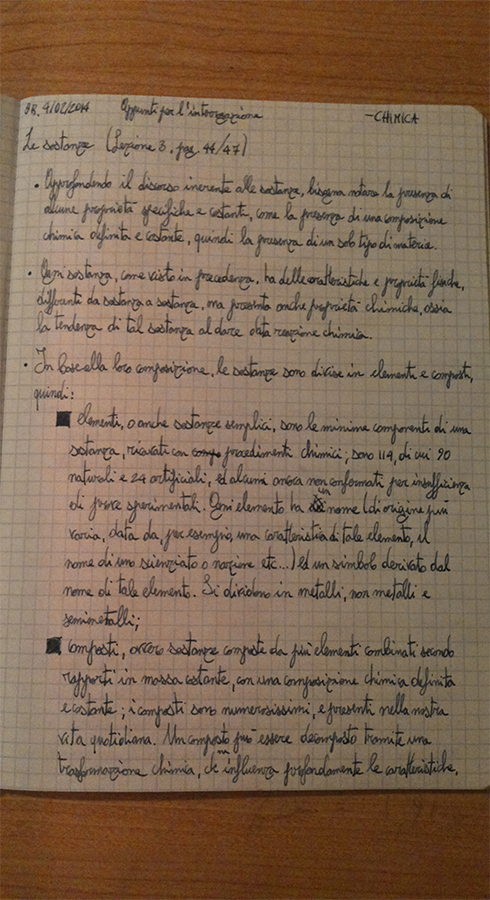 BR, 4/02/2014 Appunti per l'interrogazione -CHIMICA
Le sostanze (Lezione 3, pag. 44/47)
• Approfondendo il discorso inerente alle sostanze, bisogna notare la presenza di
alcune proprietà specifiche e costanti, come la presenza di una composizione
chimica definita e costante, quindi la presenza di un solo tipo di materia.
• Ogni sostanza, come visto in precedenza, ha delle caratteristiche e proprietà fisiche,
differenti da sostanza a sostanza, ma presenta anche proprietà chimiche, ossia
la tendenza di tal sostanza al dare data reazione chimica.
• In base alla loro composizione, le sostanze sono divise in elementi e composti,
quindi:
■ Elementi, o anche sostanze semplici, sono le minime componenti di una
sostanza, ricavati con procedimenti chimici; sono 114, di cui 90
naturali e 24 artificiali, ed alcuni ancora non confermati per insufficienza
di prove sperimentali. Ogni elemento ha un nome (di origine più
varia, data da, per esempio, una caratteristica di tale elemento, il
nome di uno scienziato o nazione etc...) ed un simbolo derivato dal
nome di tale elemento. Si dividono in metalli, non metalli e
semimetalli;
■ Composti, ovvero sostanze composte da più elementi combinati secondo
rapporti in massa costante, con una composizione chimica definita
e costante; i composti sono numerosissimi, e presenti nella nostra
vita quotidiana. Un composto può essere decomposto tramite una
trasformazione chimica, che ne influenza profondamente le caratteristiche.